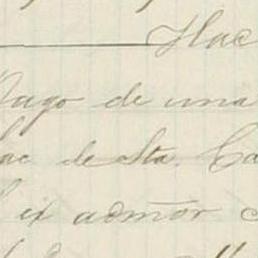 Hac
Pago de una
Hac de Sta. Ca
ex admor